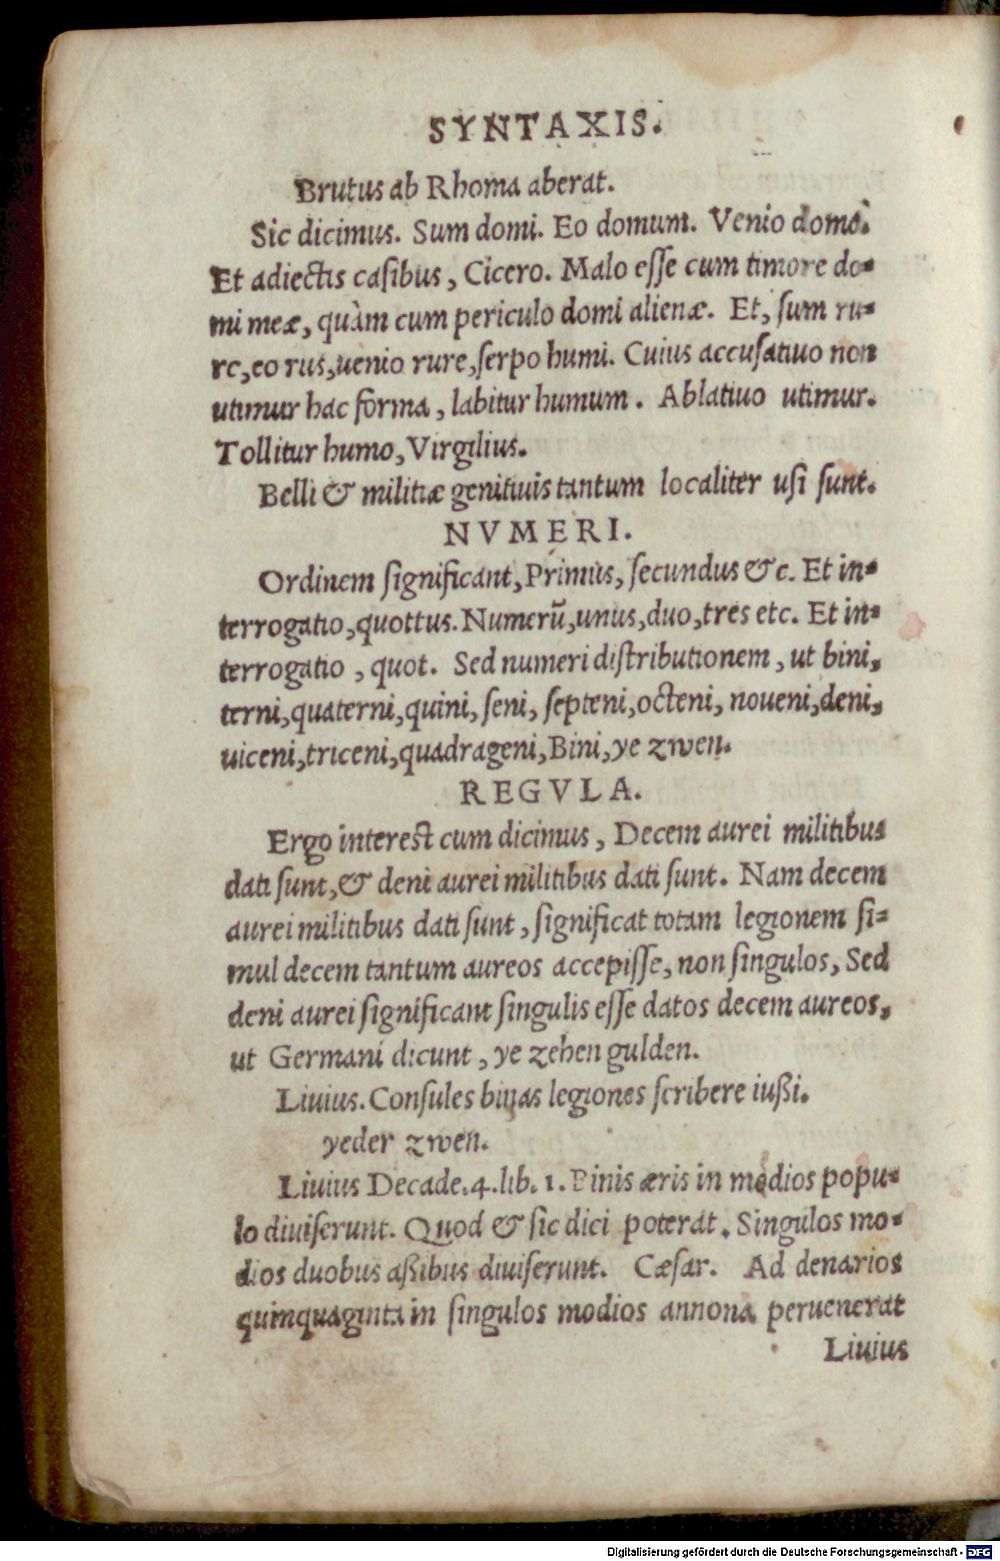 SYNTAXIS.
Brutus ab Rhoma aberat.
Sic dicimus. Sum domi. Eo domum. Venio domo.
Et adiectis casibus, Cicero. Malo esse cum timore do-
mi meæ, quàm cum periculo domi alienæ. Et, sum ru-
re, eo rus, uenio rure, serpo humi. Cuius accusatiuo non
utimur hac forma, labitur humum. Ablatiuo utimur.
Tollitur humo, Virgilius.
Belli & militiæ genitiuis tantum localiter usi sunt.
NVMERI.
Ordinem significant, Primus, secundus &c. Et in-
terrogatio, quottus. Numerũ, unus, duo, tres etc. Et in-
terrogatio, quot. Sed numeri distributionem, ut bini,
terni, quaterni, quini, seni, septeni, octeni, noueni, deni,
uiceni, triceni, quadrageni, Bini, ye zwen.
REGVLA.
Ergo interest cum dicimus, Decem aurei militibus
dati sunt, & deni aurei militibus dati sunt. Nam decem
aurei militibus dati sunt, significat totam legionem si-
mul decem tantum aureos accepisse, non singulos, Sed
deni aurei significant singulis esse datos decem aureos,
ut Germani dicunt, ye zehen gulden.
Liuius. Consules binas legiones scribere iußi.
yeder zwen.
Liuius Decade. 4. lib. 1. Binis æris in modios popu-
lo diuiserunt. Quod & sic dici poterat. Singulos mo-
dios duobus aßibus diuiserunt. Cæsar. Ad denarios
quinquaginta in singulos modios annona peruenerat
Liuius
Digitalisierung gefördert durch die Deutsche Forschungsgemeinschaft - DFG